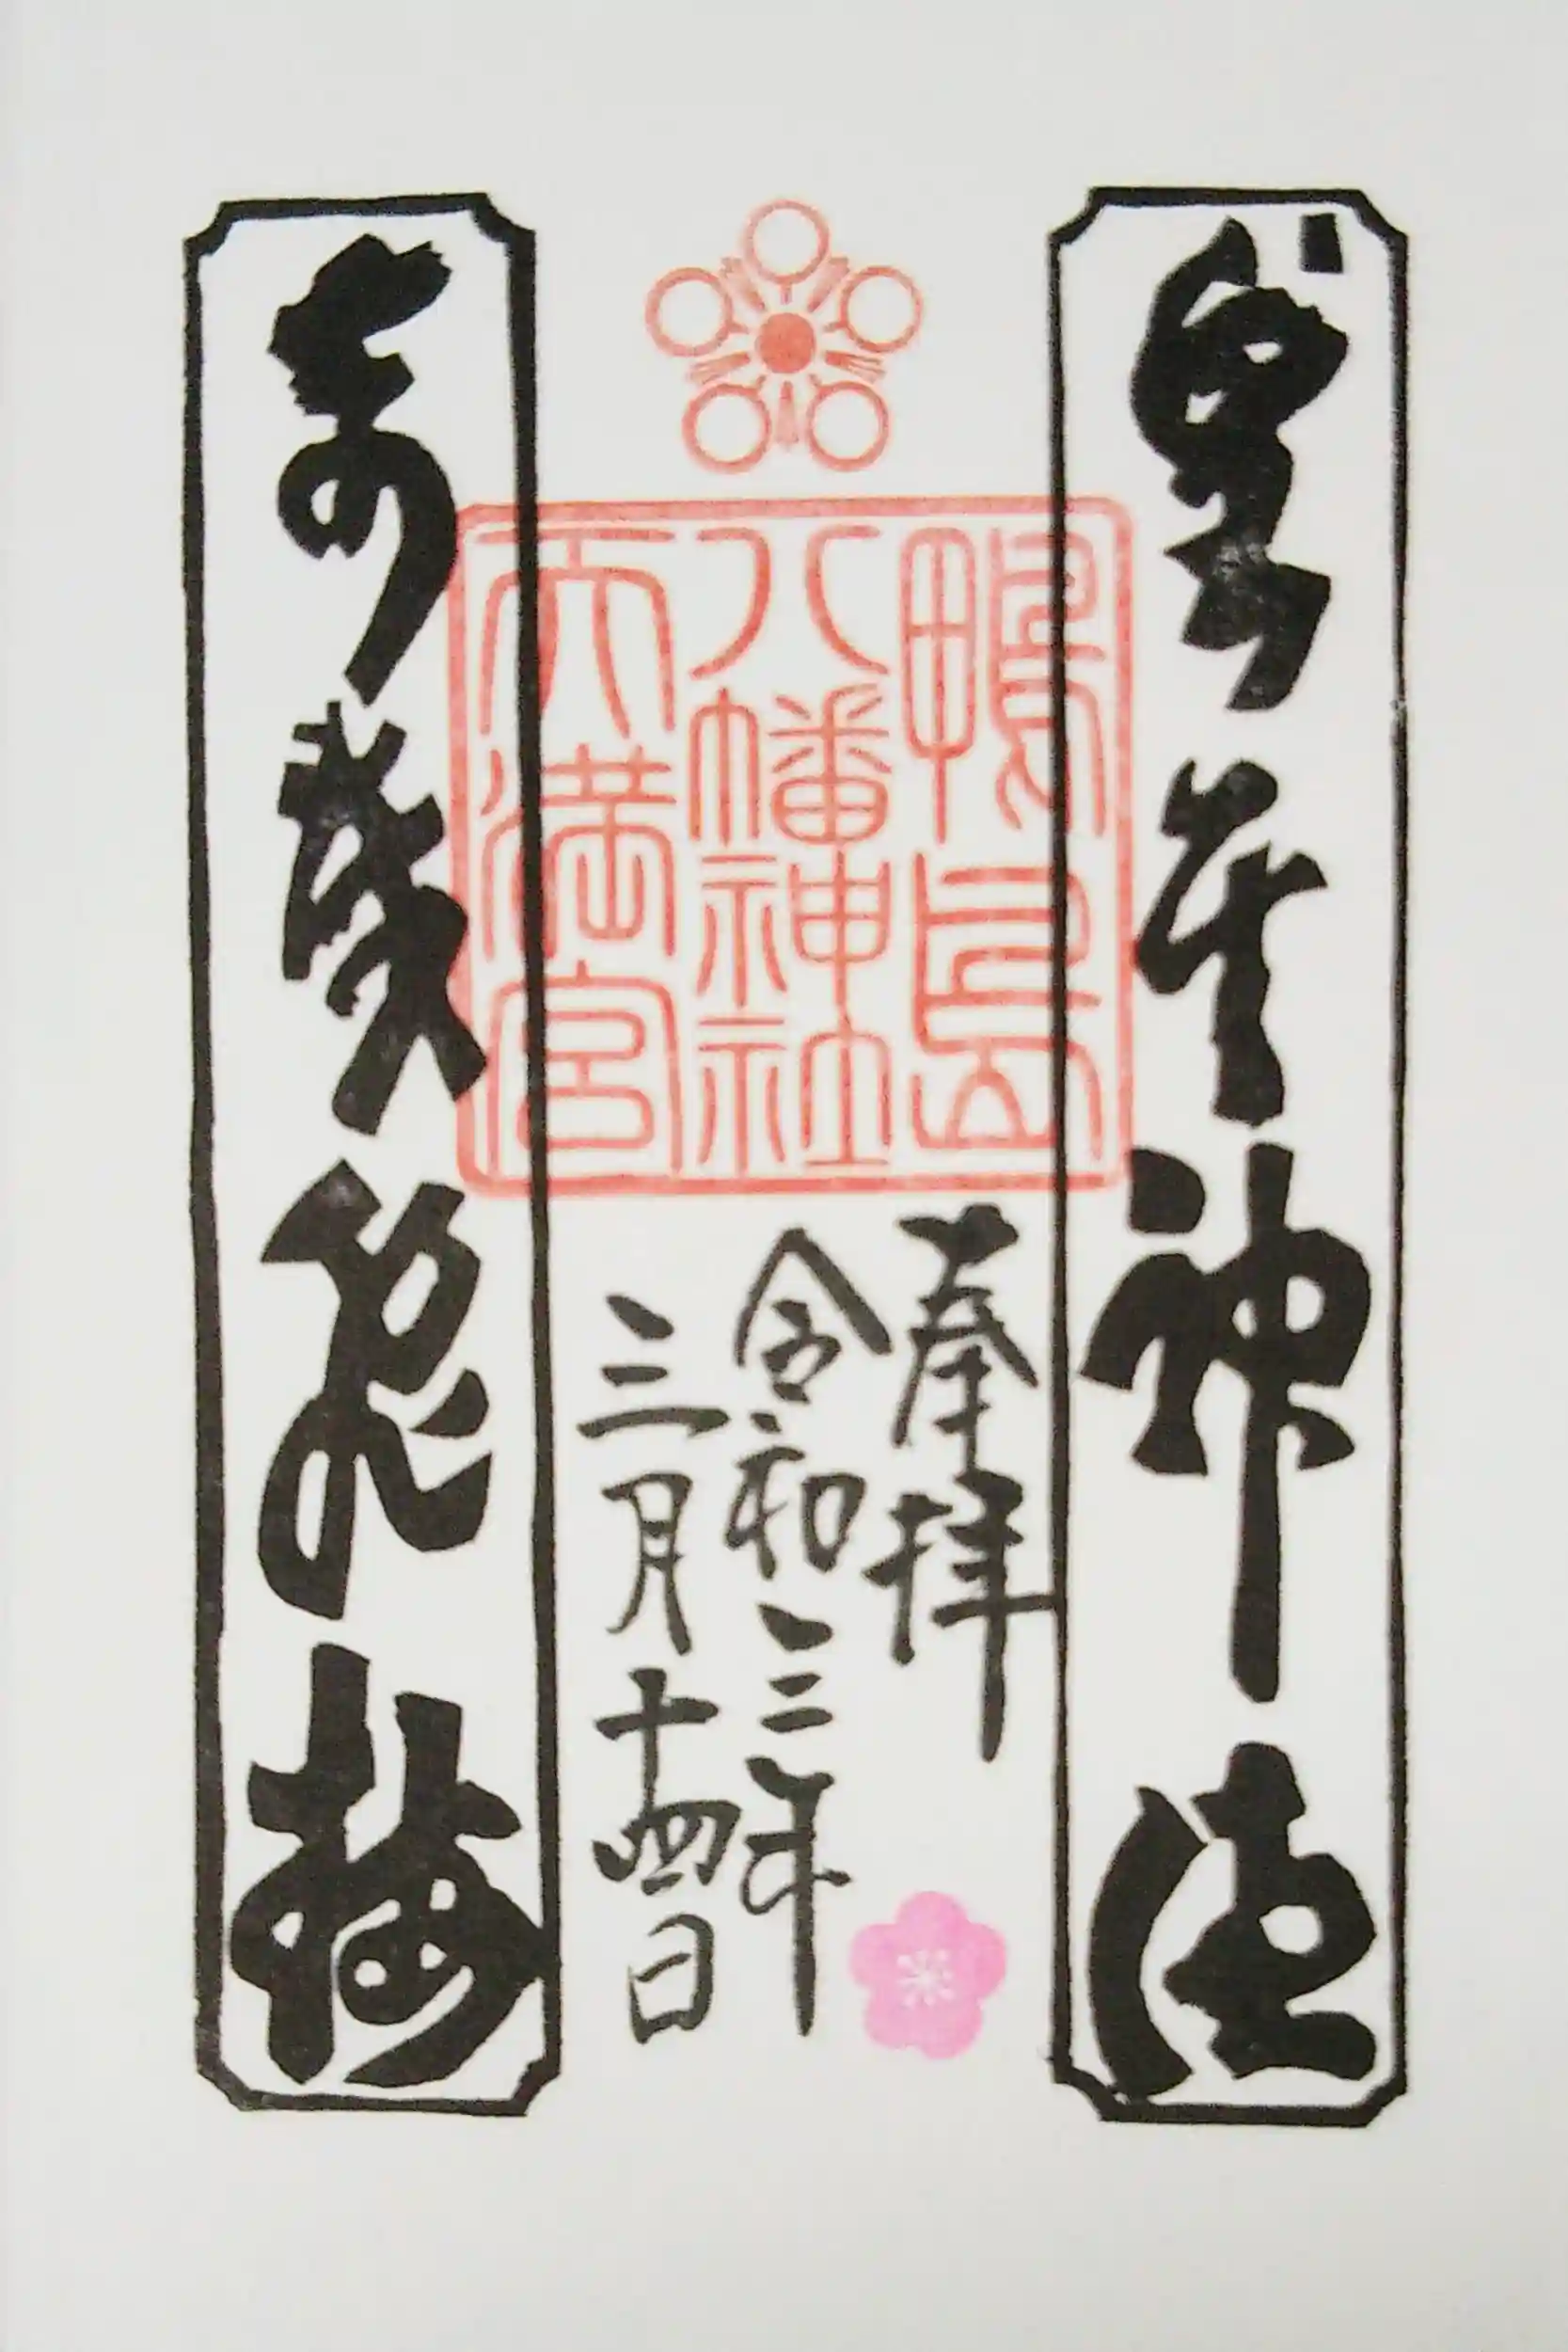 神
鴨島
八幡神社
天満宮
奉拝
令和三年
三月十四日
飛梅